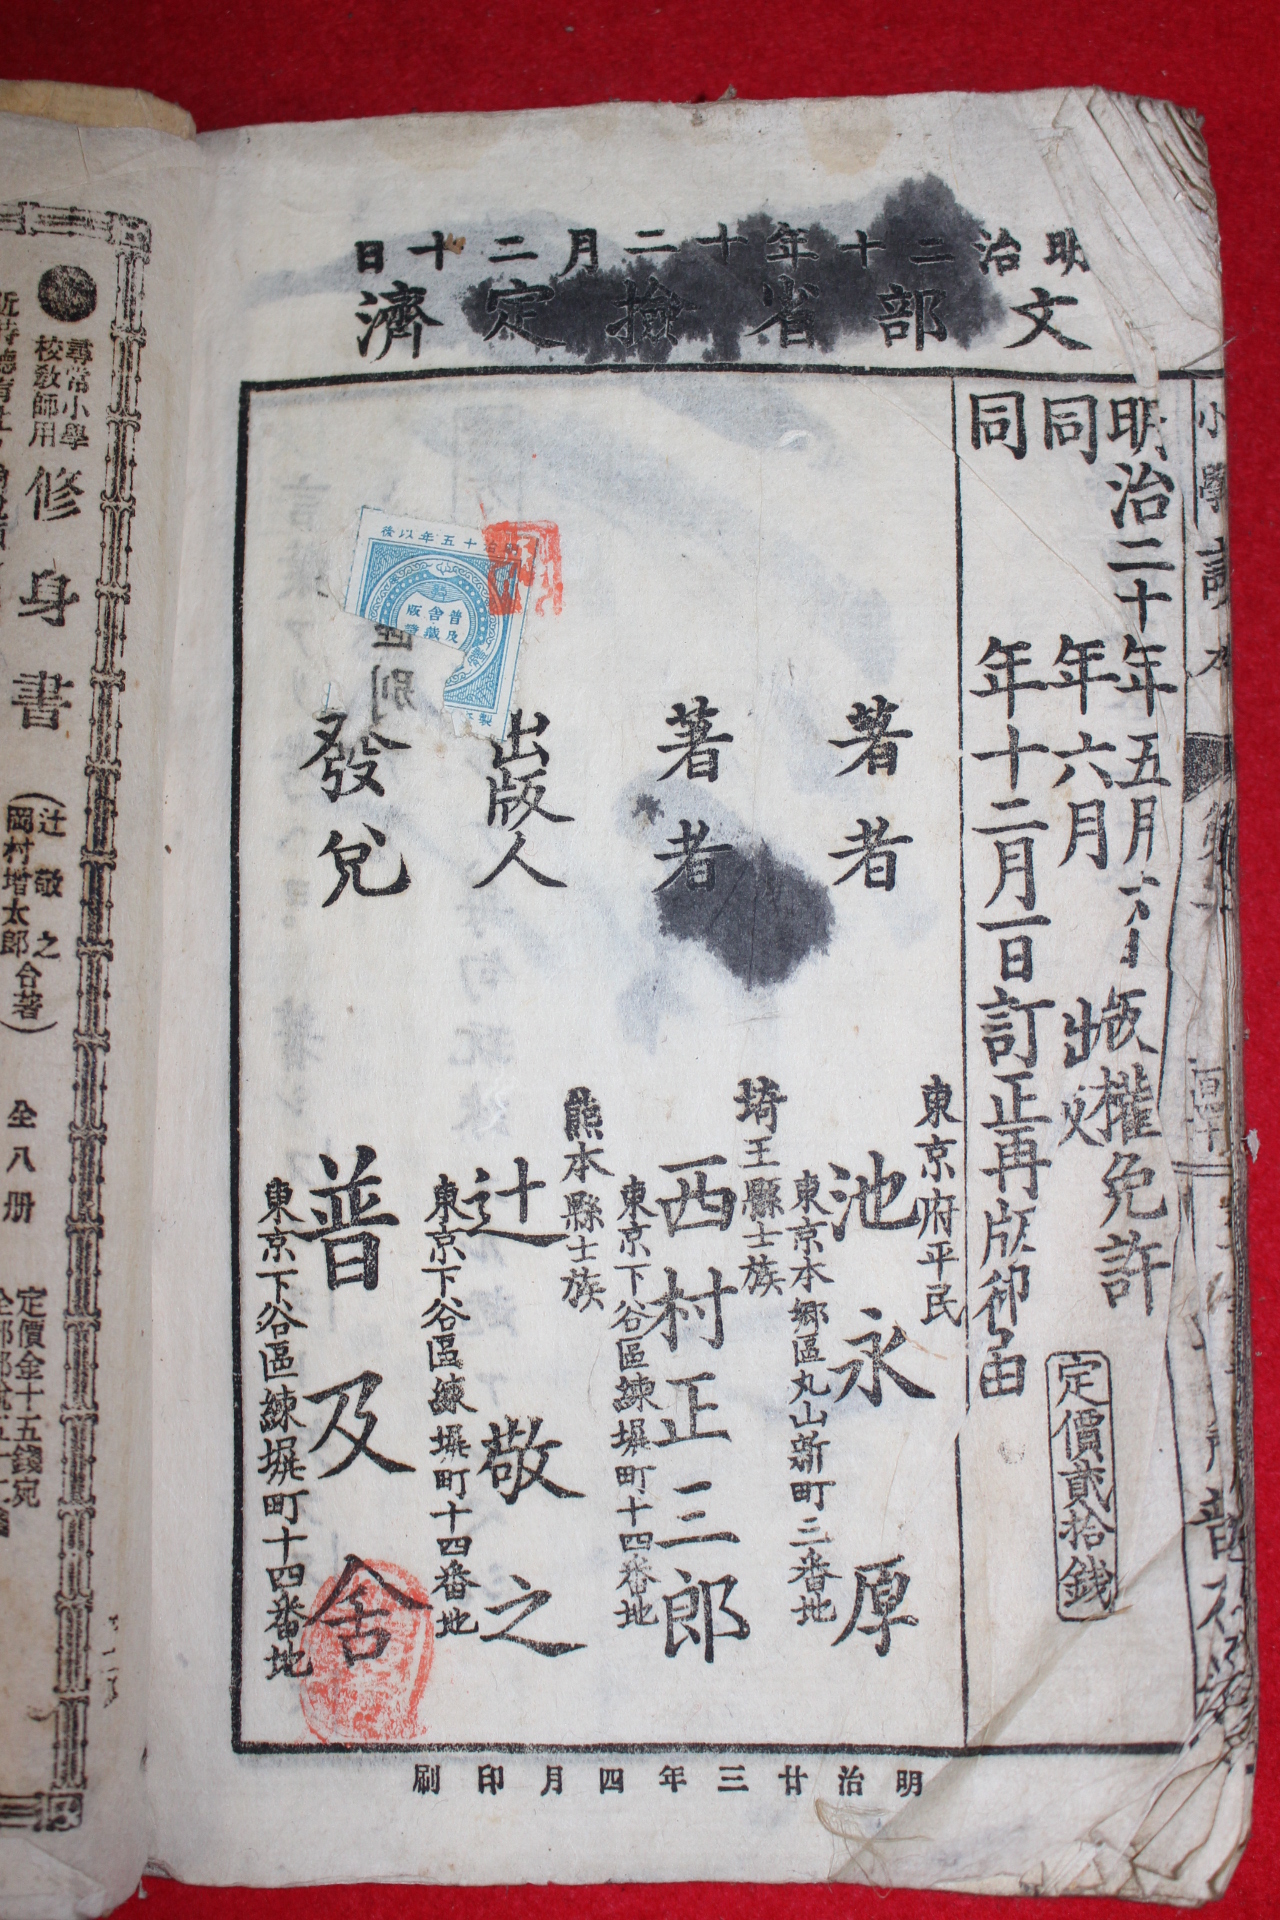 明治二十年十二月二十日
文部省檢定濟
明治二十年五月 版權免許
同年六月 出
同年十二月一日訂正再版御届
定價貳拾錢
東京府平民
著者 池永 原
東京本郷區丸山新町三番地
埼玉縣士族
著者 西村正三郎
東京下谷區練塀町十四番地
熊本縣士族
出版人 辻 敬之
東京下谷區練塀町十四番地
發兌 普及舍
東京下谷區練塀町十四番地
明治十五年以後
普及舍
明治廿三年四月印刷
小學讀本
尋常小學
校教師用
修身書
辻敬之
岡村增太郎
合著
全八册
定價金十五錢宛